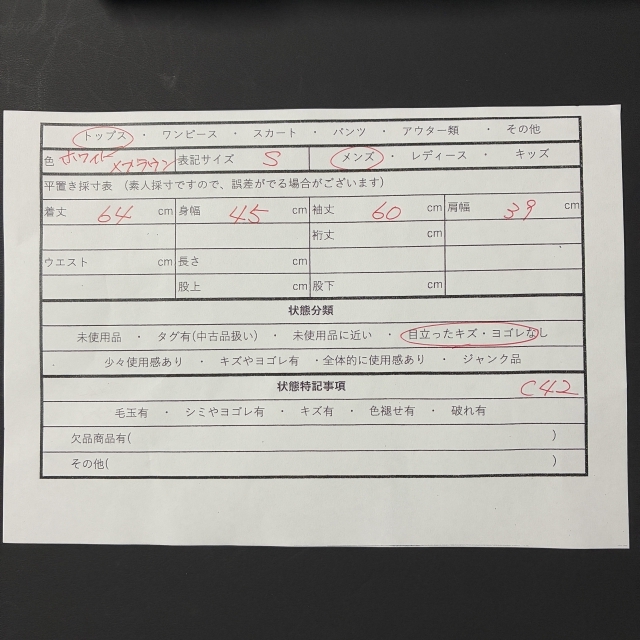 トップス ・ ワンピース ・ スカート ・ パンツ ・ アウター類 ・ その他
色 ホワイト×ブラウン 表記サイズ S メンズ ・ レディース ・ キッズ
平置き採寸表 （素人採寸ですので、誤差がでる場合がございます）
着丈 64 cm 身幅 45 cm 袖丈 60 cm 肩幅 39 cm
裄丈 cm
ウエスト cm 長さ cm
股上 cm 股下 cm
状態分類
未使用品 ・ タグ有(中古品扱い) ・ 未使用品に近い ・ 目立ったキズ・ヨゴレなし
少々使用感あり ・ キズやヨゴレ有 ・全体的に使用感あり ・ ジャンク品
状態特記事項 C42
毛玉有 ・ シミやヨゴレ有 ・ キズ有 ・ 色褪せ有 ・ 破れ有
欠品商品有( )
その他( )